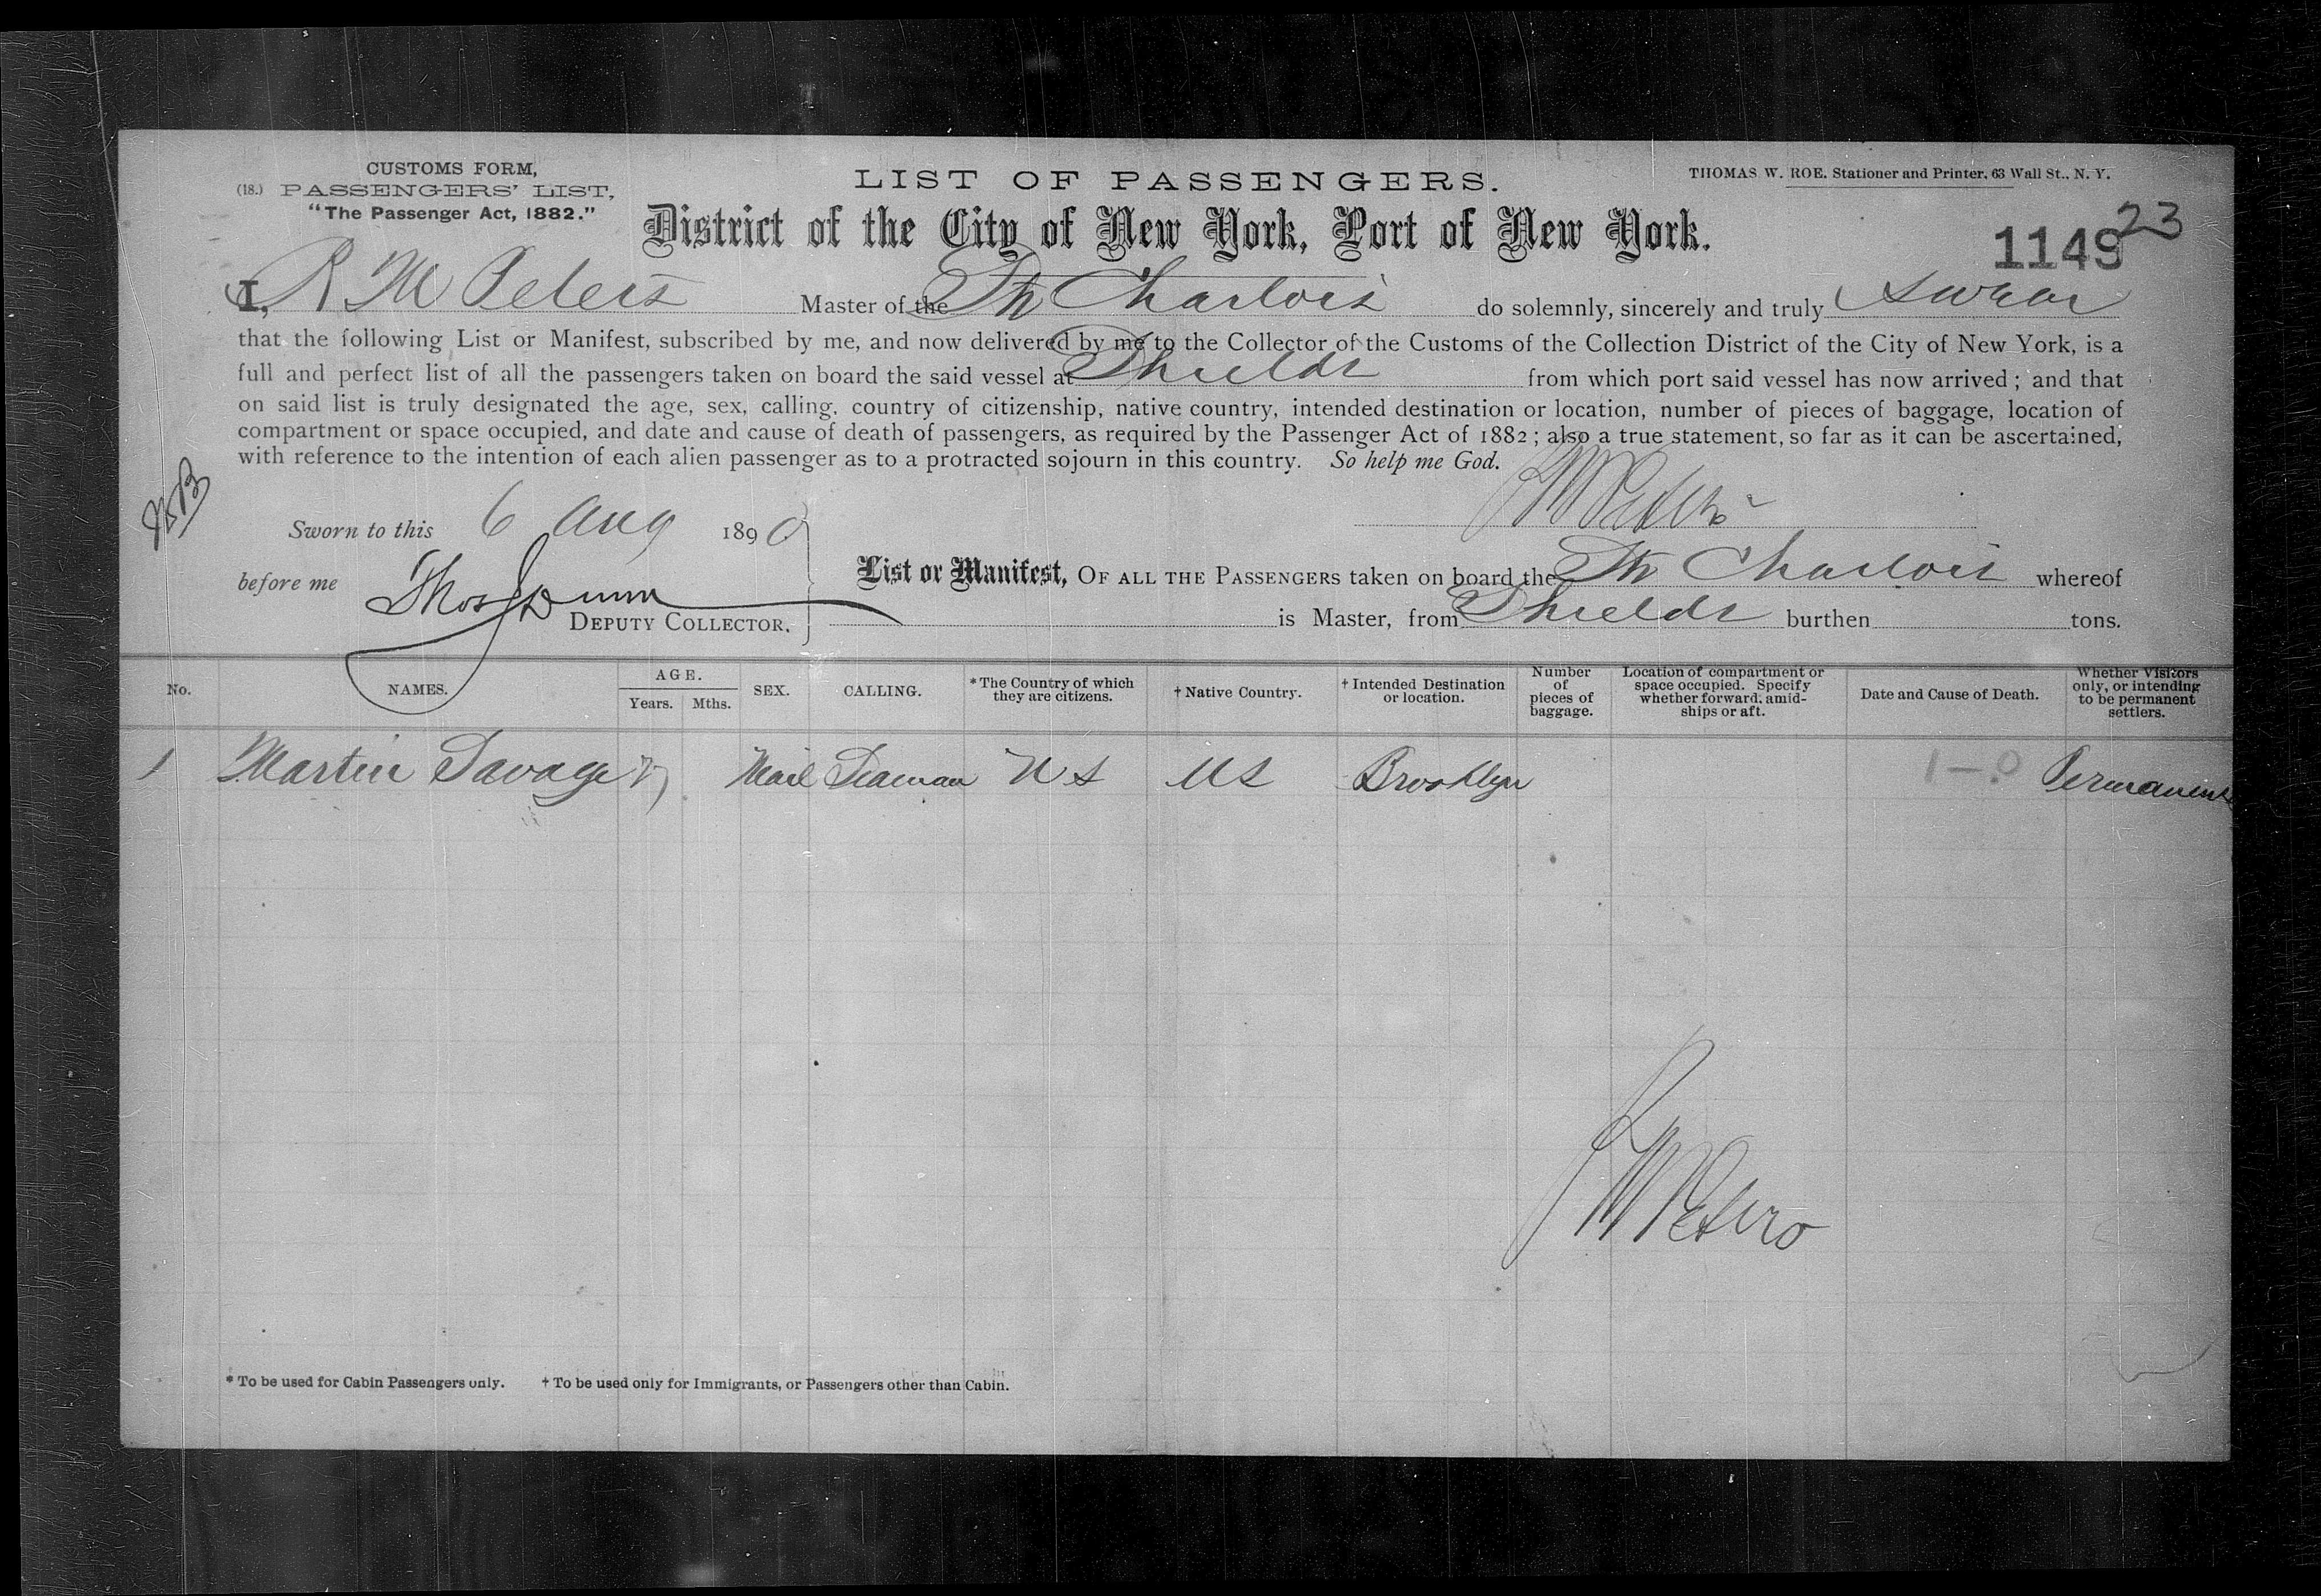 CUSTOMS FORM,
(18.) PASSENGERS' LIST,
"The Passenger Act, 1882."
LIST OF PASSENGERS.
THOMAS W. ROE, Stationer and Printer, 63 Wall St., N. Y.
District of the City of New York, Port of New York.
1149 23
I, R M Peters Master of the Charlois do solemnly, sincerely and truly swear
that the following List or Manifest, subscribed by me, and now delivered by me to the Collector of the Customs of the Collection District of the City of New York, is a
full and perfect list of all the passengers taken on board the said vessel at Shields from which port said vessel has now arrived; and that
on said list is truly designated the age, sex, calling, country of citizenship, native country, intended destination or location, number of pieces of baggage, location of
compartment or space occupied, and date and cause of death of passengers, as required by the Passenger Act of 1882; also a true statement, so far as it can be ascertained,
with reference to the intention of each alien passenger as to a protracted sojourn in this country. So help me God.
RM Peters
Sworn to this 6 Aug 1890
before me Thos Dunn
DEPUTY COLLECTOR.
List or Manifest, OF ALL THE PASSENGERS taken on board the Charlois whereof
is Master, from Shields burthen tons.
No. NAMES. AGE. Years. Mths. SEX. CALLING. * The Country of which they are citizens. † Native Country. † Intended Destination or location. Number of pieces of baggage. Location of compartment or space occupied. Specify whether forward, amidships or aft. Date and Cause of Death. Whether Visitors only, or intending to be permanent settlers.
1 Martin Savage Mail Seaman US US Brooklyn 1-0 Permanent
RM Peters
* To be used for Cabin Passengers only. † To be used only for Immigrants, or Passengers other than Cabin.